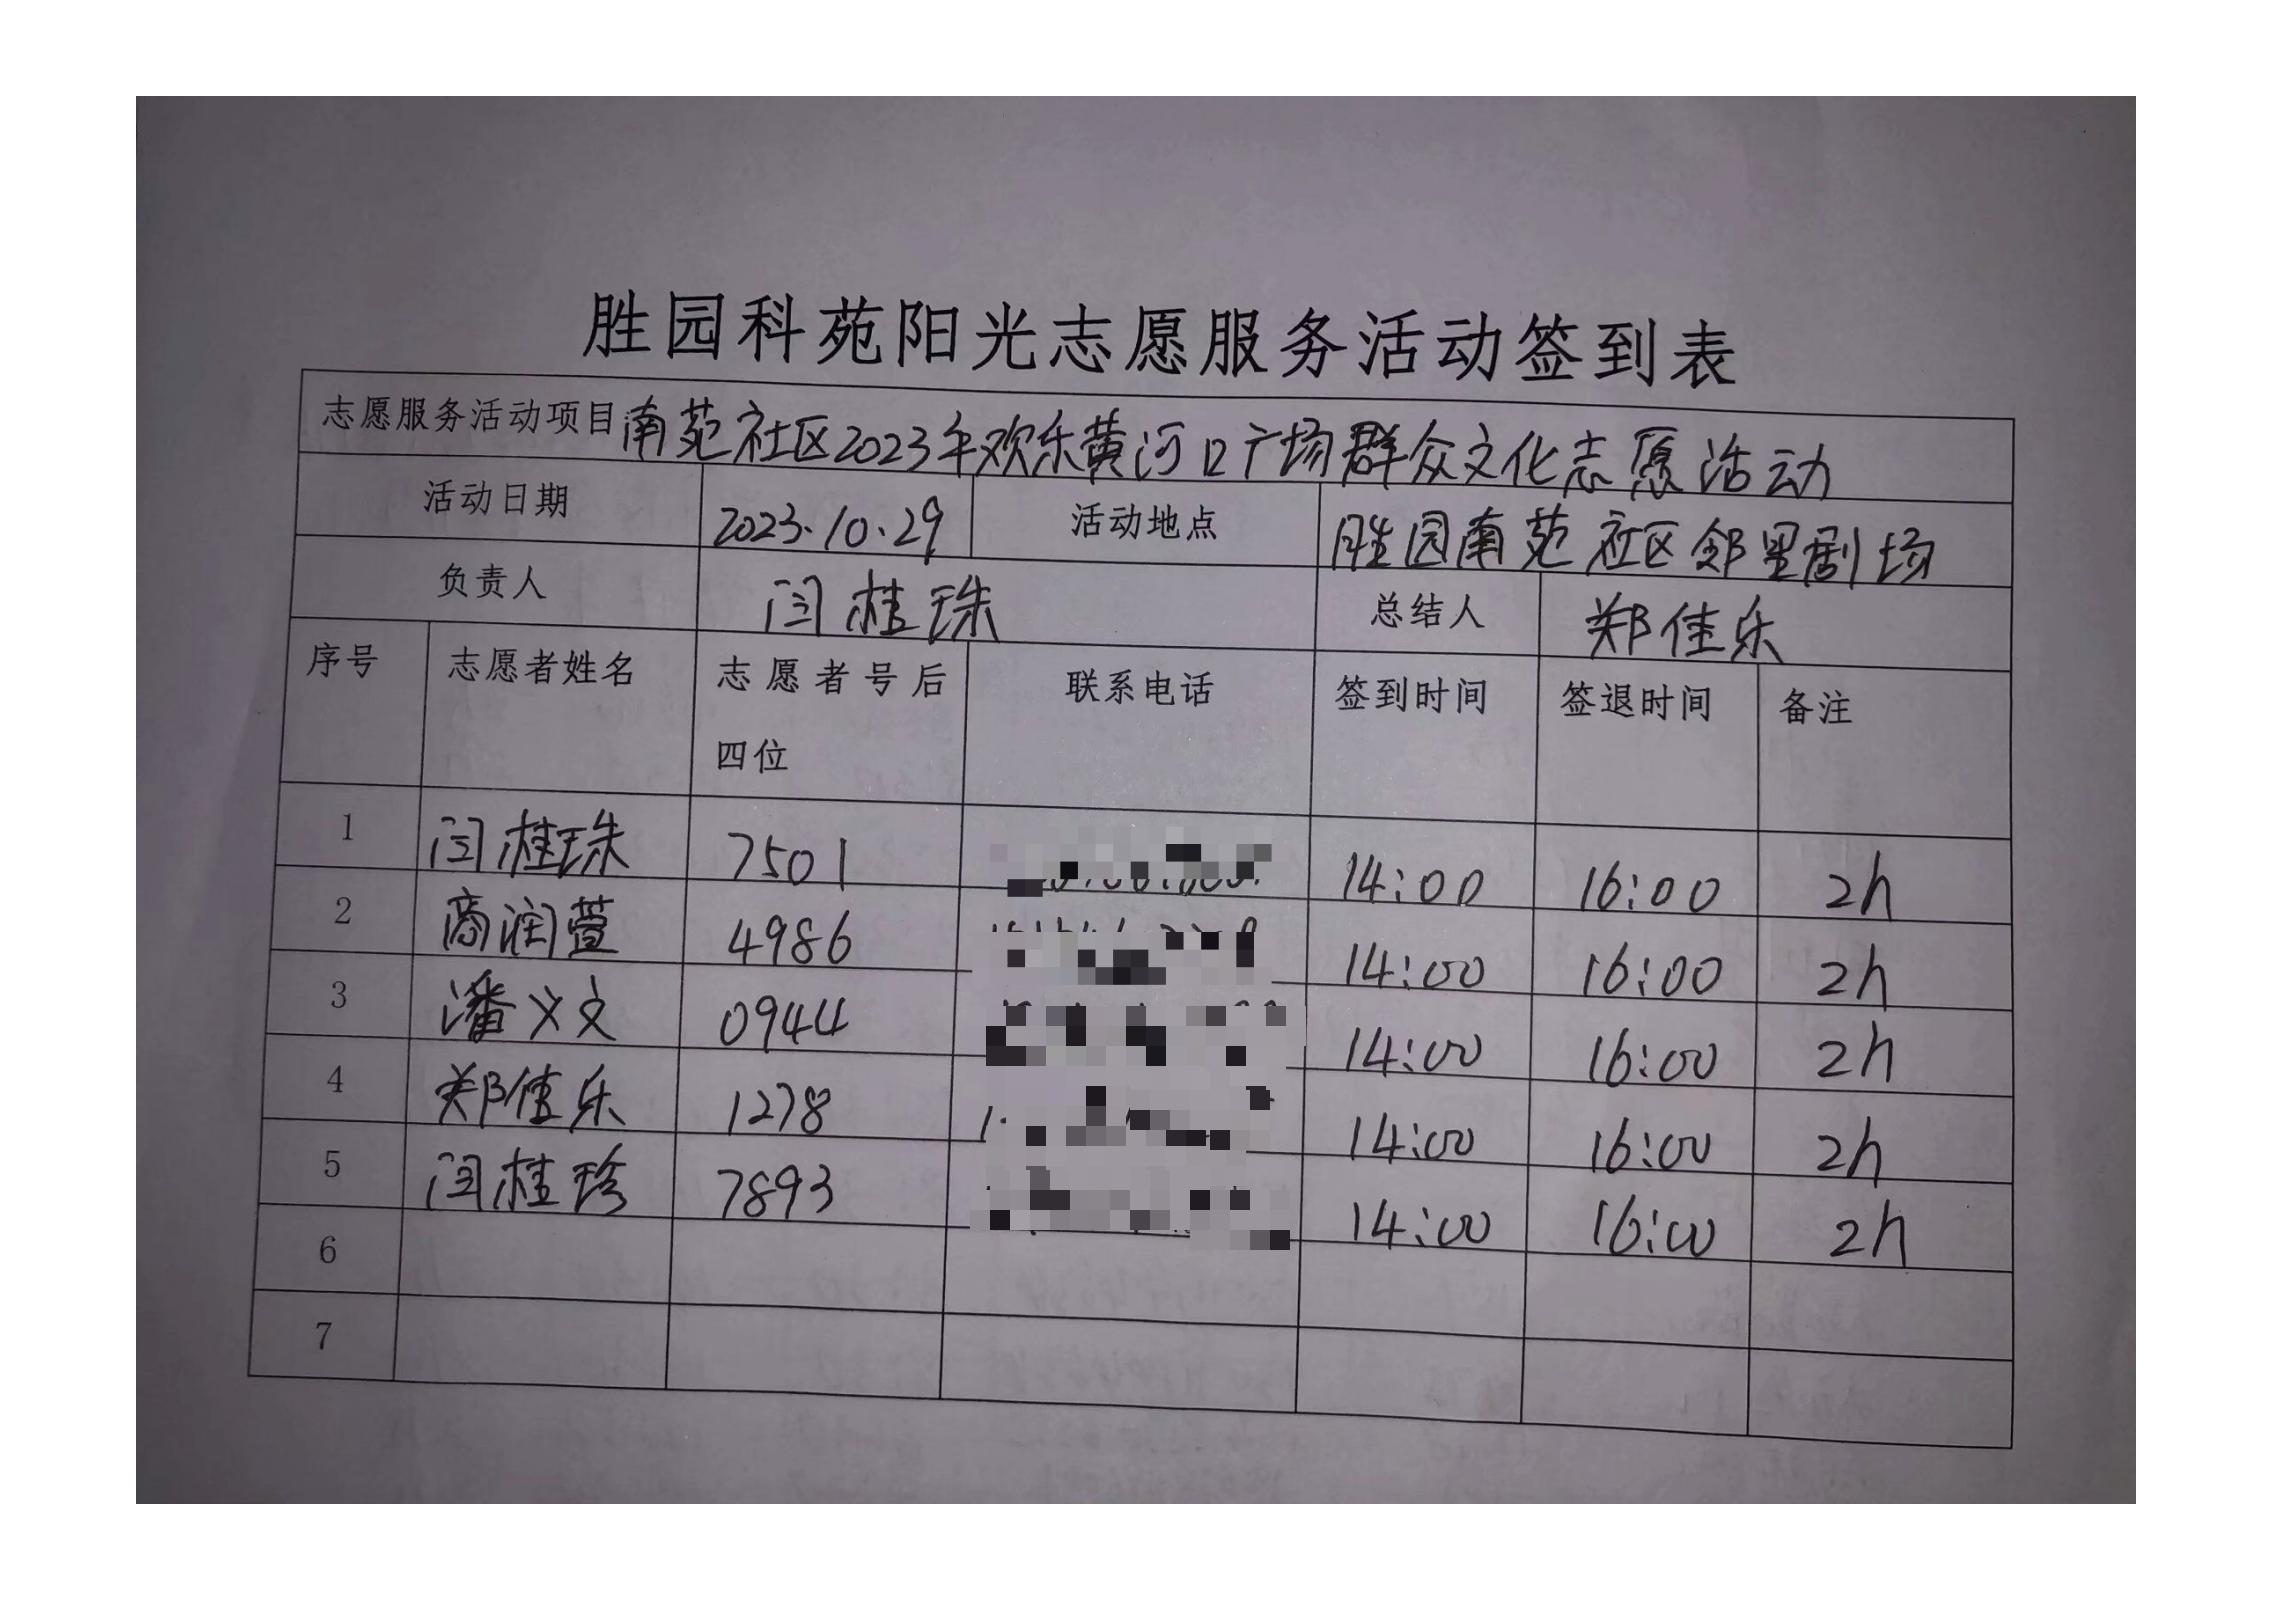 胜园科苑阳光志愿服务活动签到表
志愿服务活动项目 南苑社区2023年欢乐黄河口广场群众文化志愿活动
活动日期 2023.10.29 活动地点 胜园南苑社区邻里剧场
负责人 闫桂珠 总结人 郑佳乐
序号 志愿者姓名 志愿者号后四位 联系电话 签到时间 签退时间 备注
1 闫桂珠 7501 14:00 16:00 2h
2 商润萱 4986 14:00 16:00 2h
3 潘义文 0944 14:00 16:00 2h
4 郑佳乐 1278 14:00 16:00 2h
5 闫桂珍 7893 14:00 16:00 2h
6
7